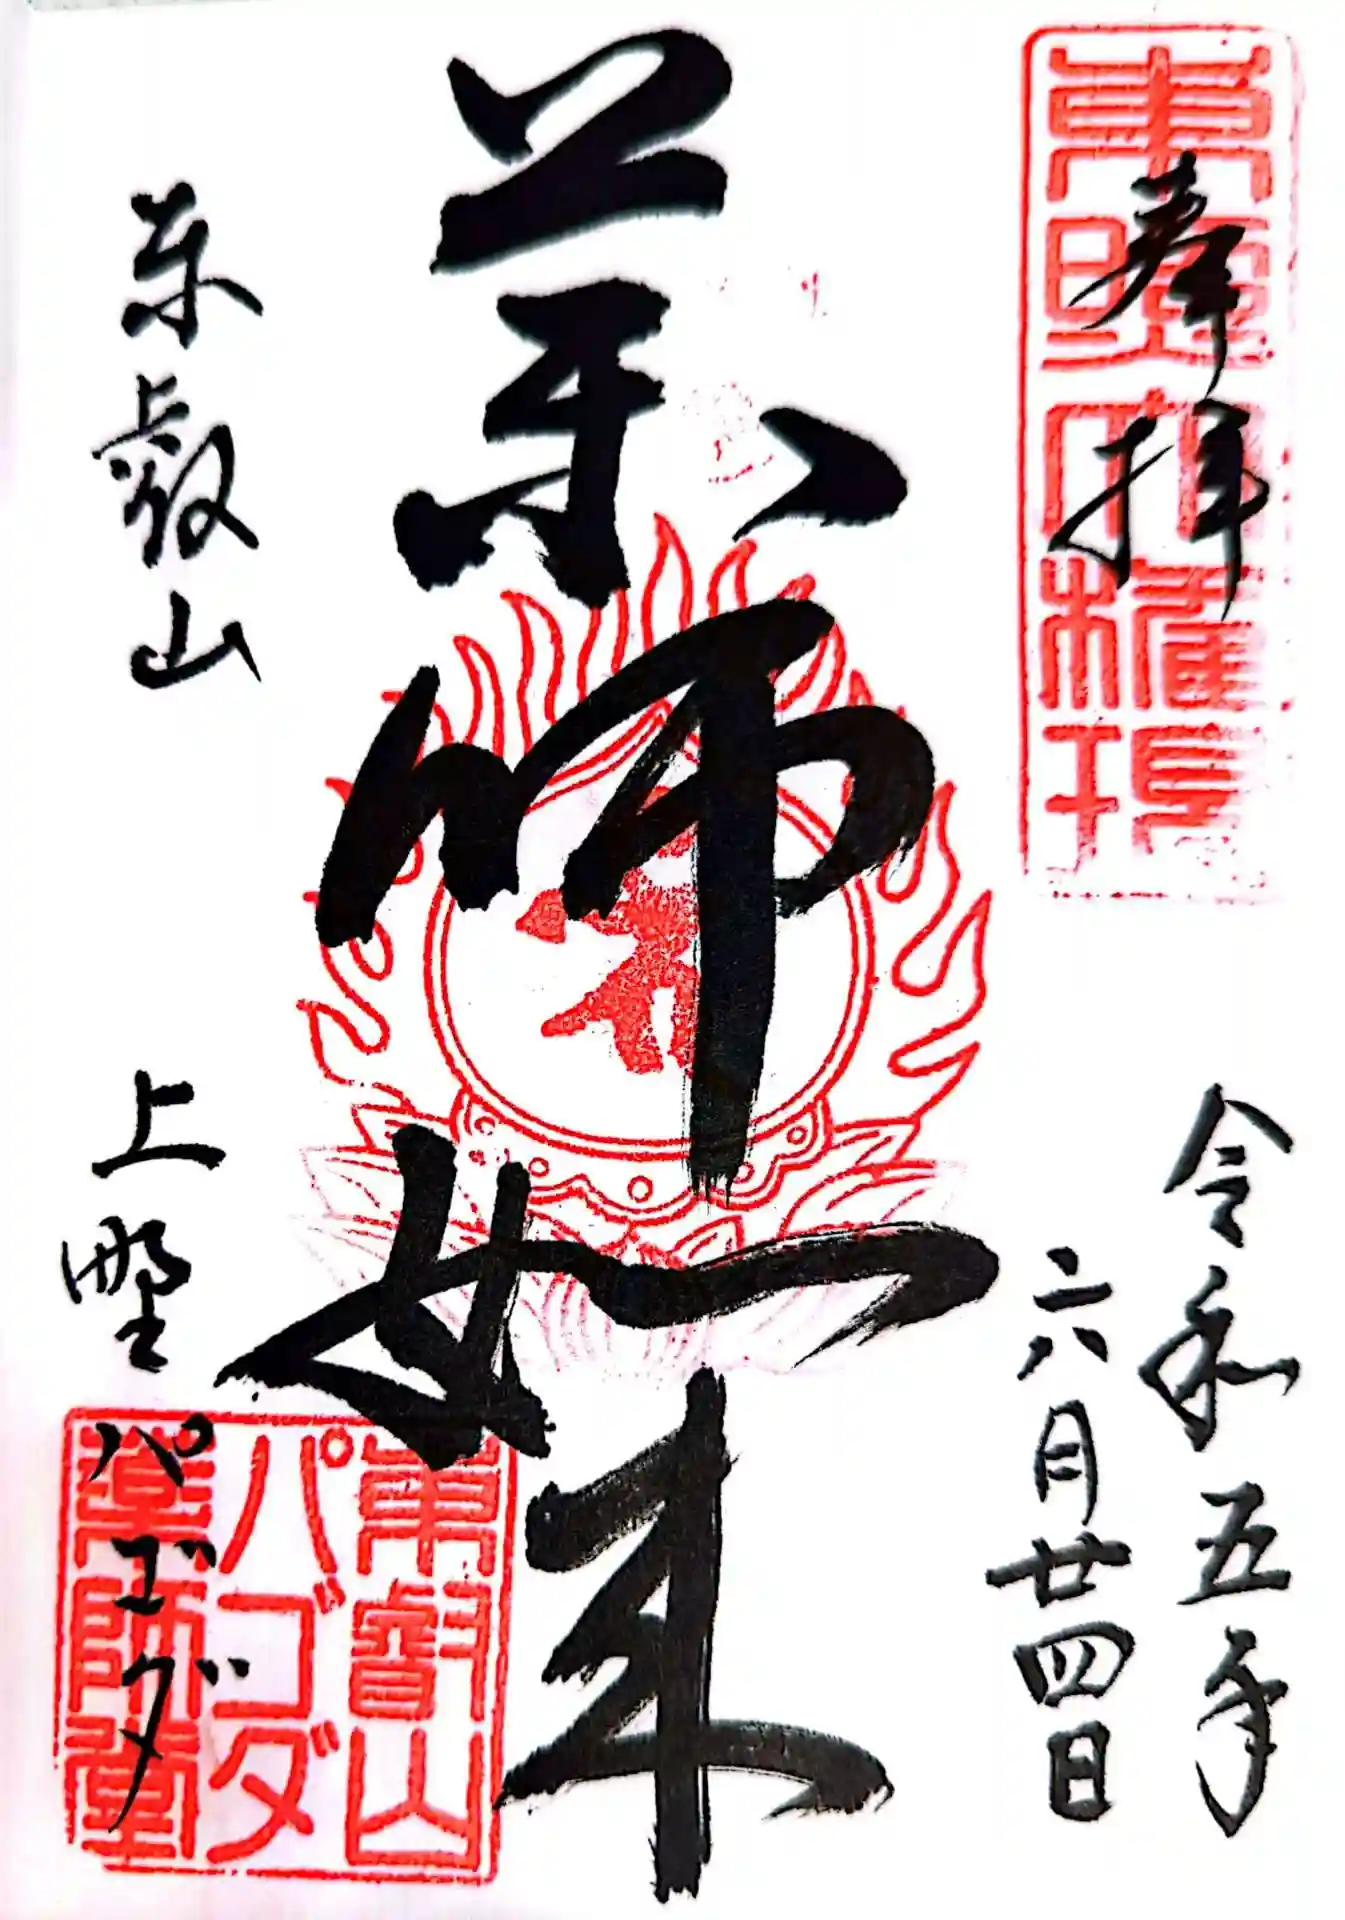 奉拝
東照大権現
令和五年
六月廿四日
薬師如来
東叡山
上野パゴダ
東叡山
パゴダ
薬師堂